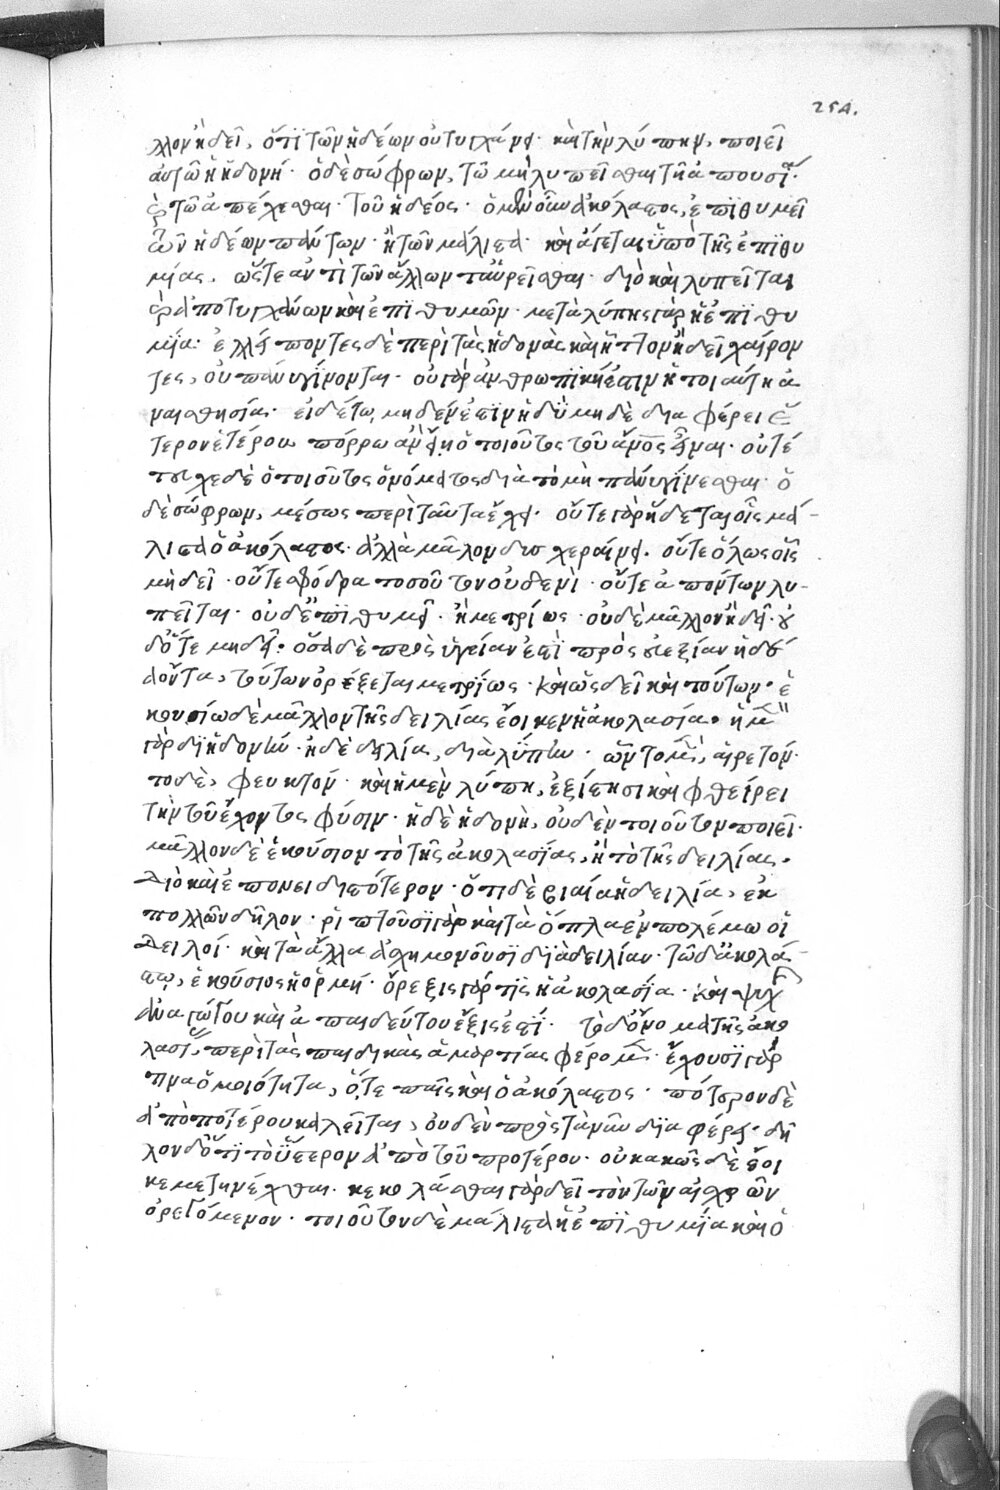 254.
λλον ἢ δεῖ, ὅτι τῶν ἡδέων οὐ τυγχάνει· καὶ τὴν λύπην, ποιεῖ
αὐτῶ ἡ ἡδονή· ὁ δὲ σώφρων, τῶ μὴ λυπεῖσθαι τῆ ἀπουσία·
καὶ τῶ ἀπέχεσθαι τοῦ ἡδέος· ὁ μὲν οὖν ἀκόλαστος, ἐπιθυμεῖ
τῶν ἡδέων πάντων· ἢ τῶν μάλιστα· καὶ ἄγεται ὑπὸ τῆς ἐπιθυ
μίας, ὥστε ἀντὶ τῶν ἄλλων ταῦθ' αἱρεῖσθαι· διὸ καὶ λυπεῖται
καὶ ἀποτυγχάνων καὶ ἐπιθυμῶν· μετὰ λύπης γὰρ ἡ ἐπιθυ
μία· ἐλλείποντες δὲ περὶ τὰς ἡδονὰς καὶ ἧττον ἢ δεῖ χαίρον
τες, οὐ πάνυ γίνονται· οὐ γὰρ ἀνθρωπική ἐστιν ἡ τοιαύτη ἀ
ναισθησία· εἰ δέ τω μηδέν ἐστιν ἡδὺ μηδὲ διαφέρει ἕ
τερον ἑτέρου πόρρω ἂν εἴη ὁ τοιοῦτος τοῦ ἄνος εἶναι· οὐ τέ
τυχε δὲ ὁ τοιοῦτος ὀνόματος διὰ τὸ μὴ πάνυ γίνεσθαι· ὁ
δὲ σώφρων, μέσως περὶ ταῦτα ἔχει· οὔτε γὰρ ἥδεται οἷς μά-
λιστα ὁ ἀκόλαστος· ἀλλὰ μᾶλλον δυσχεραίνει· οὔτε ὅλως οἷς
μὴ δεῖ· οὔτε σφόδρα τοιούτω οὐδενὶ· οὔτε ἀπόντων λυ-
πεῖται· οὐδ' ἐπιθυμεῖ· ἢ μετρίως· οὐδὲ μᾶλλον ἢ δεῖ· οὐ
δ' ὅτε μὴ δεῖ· ὅσα δὲ πρὸς ὑγίειάν ἐστι πρὸς εὐεξίαν ἡδέ
α ὄντα, τούτων ὀρέξεται μετρίως· καὶ ὡς δεῖ καὶ τούτων· ἑ
κουσίω δὲ μᾶλλον τῆς δειλίας ἔοικεν ἡ ἀκολασία· ἡ μὲν
γὰρ δι' ἡδονὴν· ἡ δὲ δειλία, διὰ λύπην· ὧν τὸ μὲν, αἱρετόν·
τὸ δὲ, φευκτόν· καὶ ἡ μὲν λύπη, ἐξίστησι καὶ φθείρει
τὴν τοῦ ἔχοντος φύσιν· ἡ δὲ ἡδονὴ, οὐδὲν τοιοῦτον ποιεῖ·
μᾶλλον δὲ ἑκούσιον τὸ τῆς ἀκολασίας, ἢ τὸ τῆς δειλίας.
Διὸ καὶ ἐπονειδιστότερον· ὅτι δὲ βιαία ἡ δειλία, ἐκ
πολλῶν δῆλον· ῥιπτοῦσι γὰρ καὶ τὰ ὅπλα ἐν πολέμω οἱ
Δειλοί· καὶ τὰ ἄλλα ἀσχημονοῦσι διὰ δειλίαν· τῶ δ' ἀκολά
στω, ἑκούσιος ἡ ὁρμή· ὄρεξις γάρ τις ἡ ἀκολασία· καὶ ψυχ
ἀναγώγου καὶ ἀπαιδεύτου ἕξις ἐστί· τὸ δ' ὄνομα τῆς ἀκο
λασίας, περὶ τὰς παιδικὰς ἁμαρτίας φέρομεν· ἔχουσι γάρ
τινα ὁμοιότητα, ὅ,τε παῖς καὶ ὁ ἀκόλαστος· πότερον δὲ
ἀπὸ ποτέρου καλεῖται, οὐδὲν πρὸς τὰ νῦν διαφέρει· δῆ
λον δ' ὅτι τὸ ὕστερον ἀπὸ τοῦ προτέρου· οὐ κακῶς δὲ ἔοι
κε μετηνέχθαι· κεκολάσθαι γὰρ δεῖ τὸν τῶν αἰσχρῶν
ὀρεγόμενον· τοιοῦτον δὲ μάλιστα ἡ ἐπιθυμία καὶ ὁ